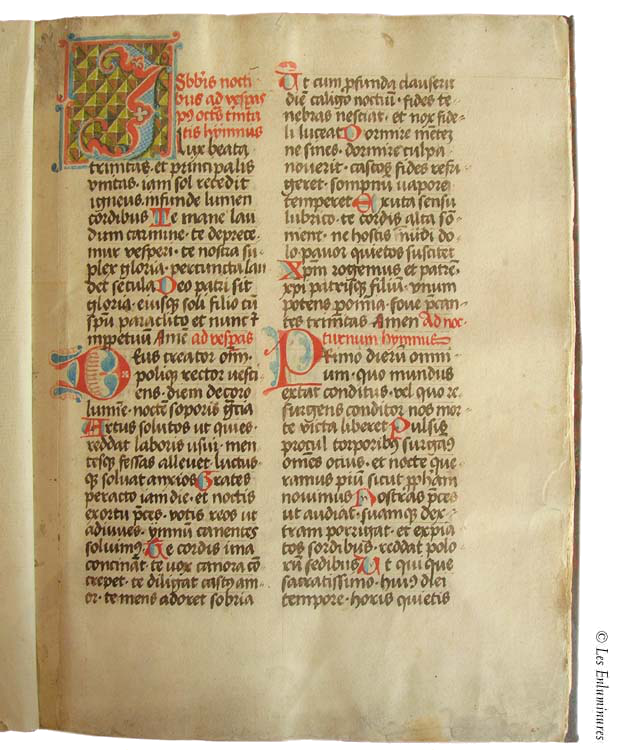 Sbbīs nocti
bus ad vespas
pꝰ octās tīnita
tis hymnus
lux beata
trinitas · et principalis
vnitas · iam sol recedit
igneus · infunde lumen
cordibus Te mane lau
dum carmine · te deprece
mur vesperi · te nostra su
plex gloria · per cuncta lau
det secula Deo patri sit
gloria · eiusqꝫ soli filio cū
spū paraclito et nunc ⁊
imppetuū Amē ad vespas
Deus creator oīm ·
poliqꝫ rector vesti
ens · diem decoro
lumīe · noctē soporis gr̄cia
Artus solutos ut quies ·
reddat laboris usui · men
tesqꝫ fessas alleuet · luctus
qꝫ soluat anxios Grates
peracto iam die · et noctis
exortu p̄ces · votis reos ut
adiuues · ymnū canentes
soluimꝰ Te cordis ima
concināt · te vox canora cō
crepet · te diligat castꝰ am
or · te mens adoret sobria
Ut cum p̄funda clauserit
diē caligo noctiū · fides te
nebras nesciat · et nox fide
li luceat Dormire mētez
ne sines · dormire culpa
nouerit · castos fides refri
geret · sompni uapore
temperet Exuta sensu
lubrico · te cordis alta sō
ment · ne hostis inuidi do
lo · pauor quietos suscitet
Xpm̄ rogemus et patrē ·
xpi patrisqꝫ filiū · vnum
potens p omnia · foue p̄can
tes trinitas Amen Ad noc
turnum hymnus
Primo dierū omni
um · quo mundus
extat conditus · vel quo re
surgens conditor nos mor
te victa liberet Pulsis
procul torporibus surgamꝰ
omēs ocius · et nocte que
ramus piū sicut prophām
nouimus Nostras p̄ces
ut audiat · suamqꝫ dex
tram porrigat · et expia
tos sordibus · reddat polo
rū sedibus Ut qui que
sacratissimo · huiꝰ diei
tempore · horis quietis
© Les Enluminures